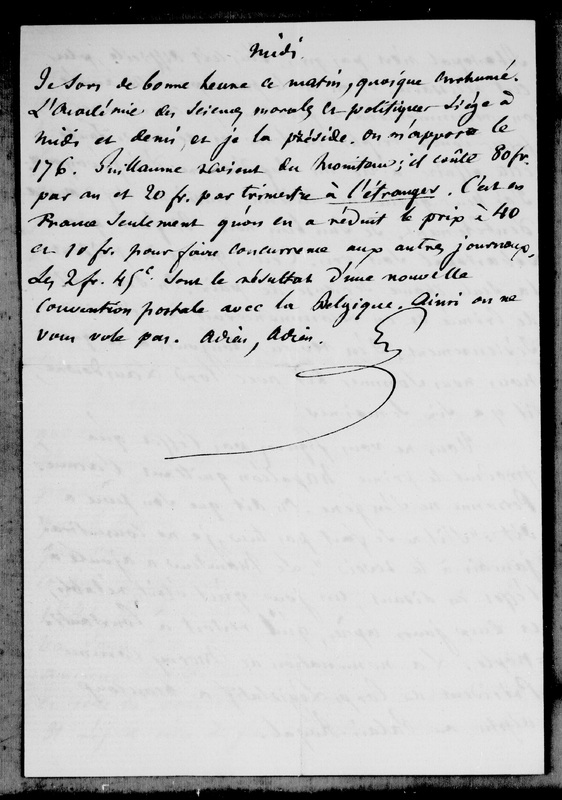 Midi
Je sors de bonne heure ce matin, quoique enrhumé.
L'Académie des sciences morales et politiques siège à
midi et demi et je la préside. On m'apporte le
176. Guillaume revient du Moniteur; il coûte 80 fr.
par an et 20 fr. par trimestre à l'étranger. C'est en
France seulement qu'on en a réduit le prix à 40
et 10 fr. pour faire concurrence aux autres journaux.
Les 2 fr. 45 c. sont le résultat d'une nouvelle
convention postale avec la Belgique. Ainsi on ne
vous vole pas. Adieu, Adieu.